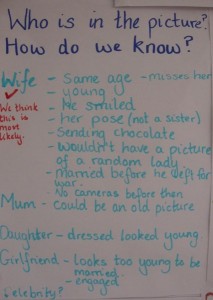 Who is in the picture?
How do we know?
Wife - Same age - misses her
- young
We think this is most likely.
- He smiled
- her pose (not a sister)
- Sending chocolate
- wouldn't have a picture
of a random lady
- married before he left for
war.
- No cameras before then
Mum - could be an old picture
Daughter - dressed looked young
Girlfriend - looks too young to be
married.
- engaged
celebrity?